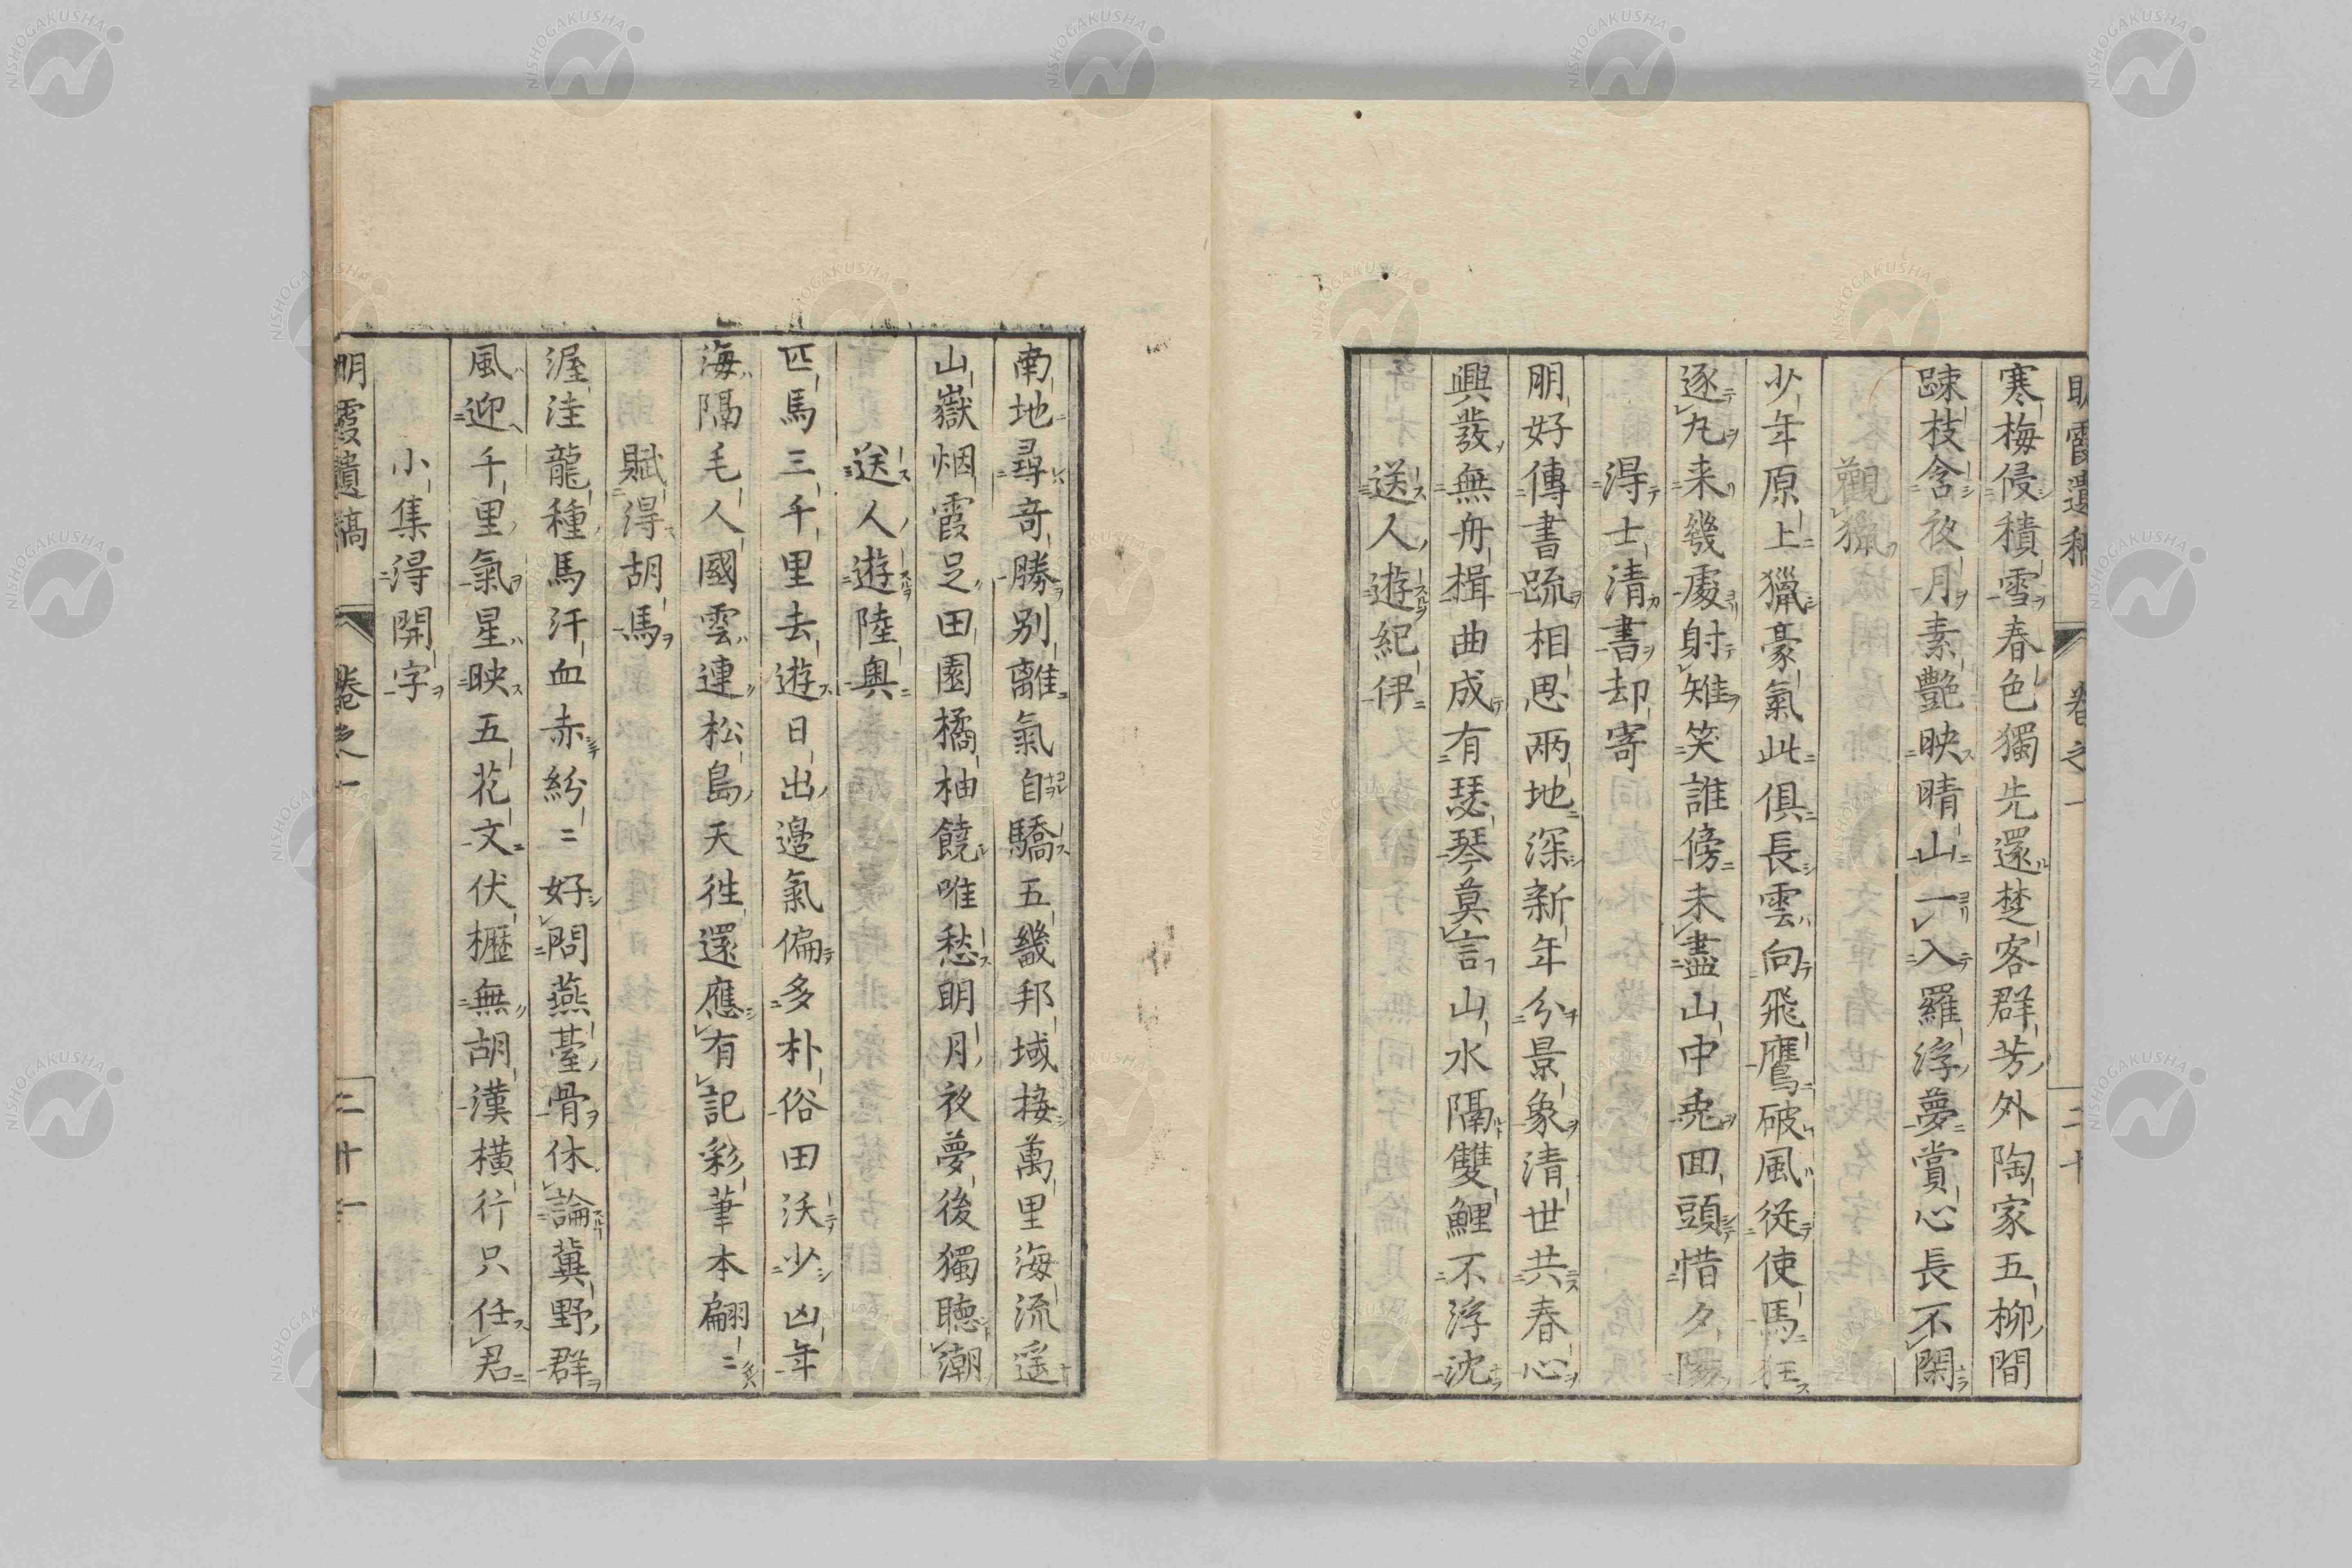 明霞遺稿 卷之一 二十
寒梅侵積雪春色獨先還楚客群芳外陶家五柳間
踈枝含夜月素艶映晴山一入羅浮夢賞心長不閑
觀獵
少年原上獵豪氣此俱長雲向飛鷹破風從使馬狂
逐丸来幾處射雉笑誰傍未盡山中兎囬頭惜夕陽
得士清書却寄
朋好傳書䟽相思兩地深新年分景象清世共春心
興發無舟楫曲成有瑟琴莫言山水隔雙鯉不浮沈
送人遊紀伊
南地尋竒勝別離氣自驕五畿邦域接萬里海流遥
山嶽烟霞足田園橘柚饒唯愁明月夜夢後獨聴潮
送人遊陸奥
匹馬三千里去遊日出邉氣偏多朴俗田沃少凶年
海隔毛人國雲連松島天徃還應有記彩筆本翩〻
賦得胡馬
渥洼龍種馬汗血赤紛〻好問燕䑓骨休論冀野群
風迎千里氣星映五花文伏櫪無胡漢横行只任君
小集得開字
明霞遺稿 卷之一 二十一
NISHOGAKUSHA